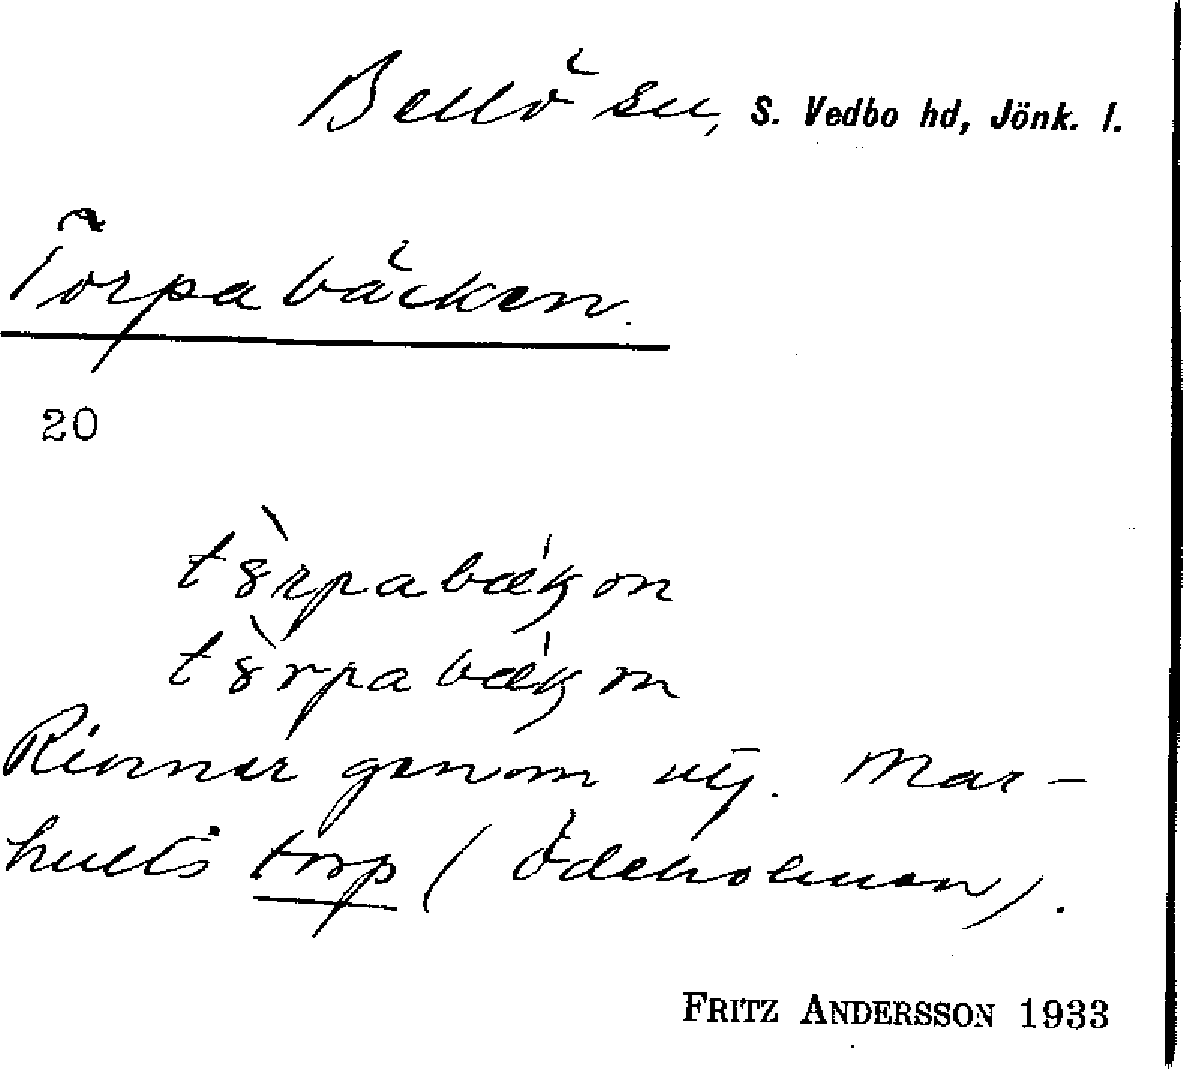 Bellö sn, S. Vedbo hd, Jönk. l.
Torpabäcken.
20
Rinner genom utj. Mar-
hults torp (Ödeholman).
FRITZ ANDERSSON 1933